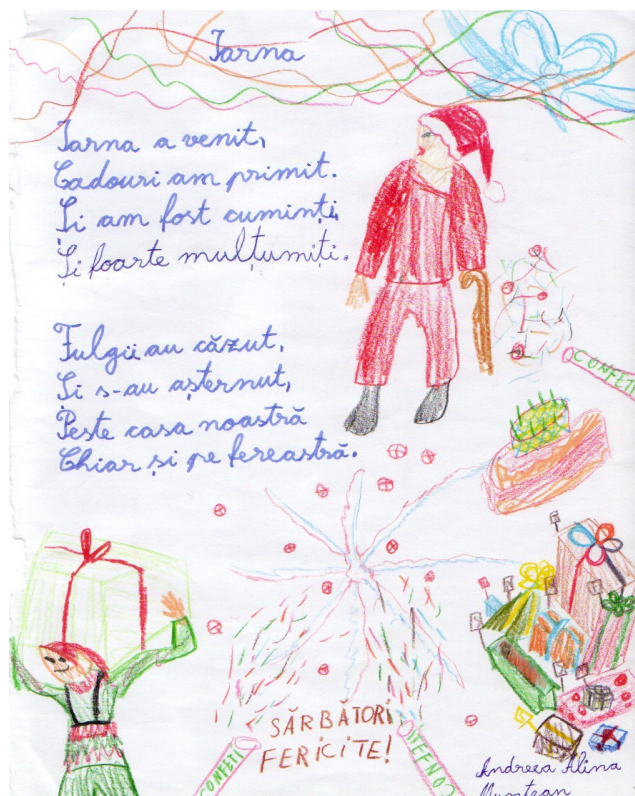 Iarna
Iarna a venit,
Cadouri am primit.
Și am fost cuminți,
Și foarte mulțumiți.
Fulgii au căzut,
Și s-au așternut,
Peste casa noastră
Chiar și pe fereastră.
CONFETI
SĂRBĂTORI
FERICITE!
CONFETI
CONFETI
Andreea Alina
Muntean